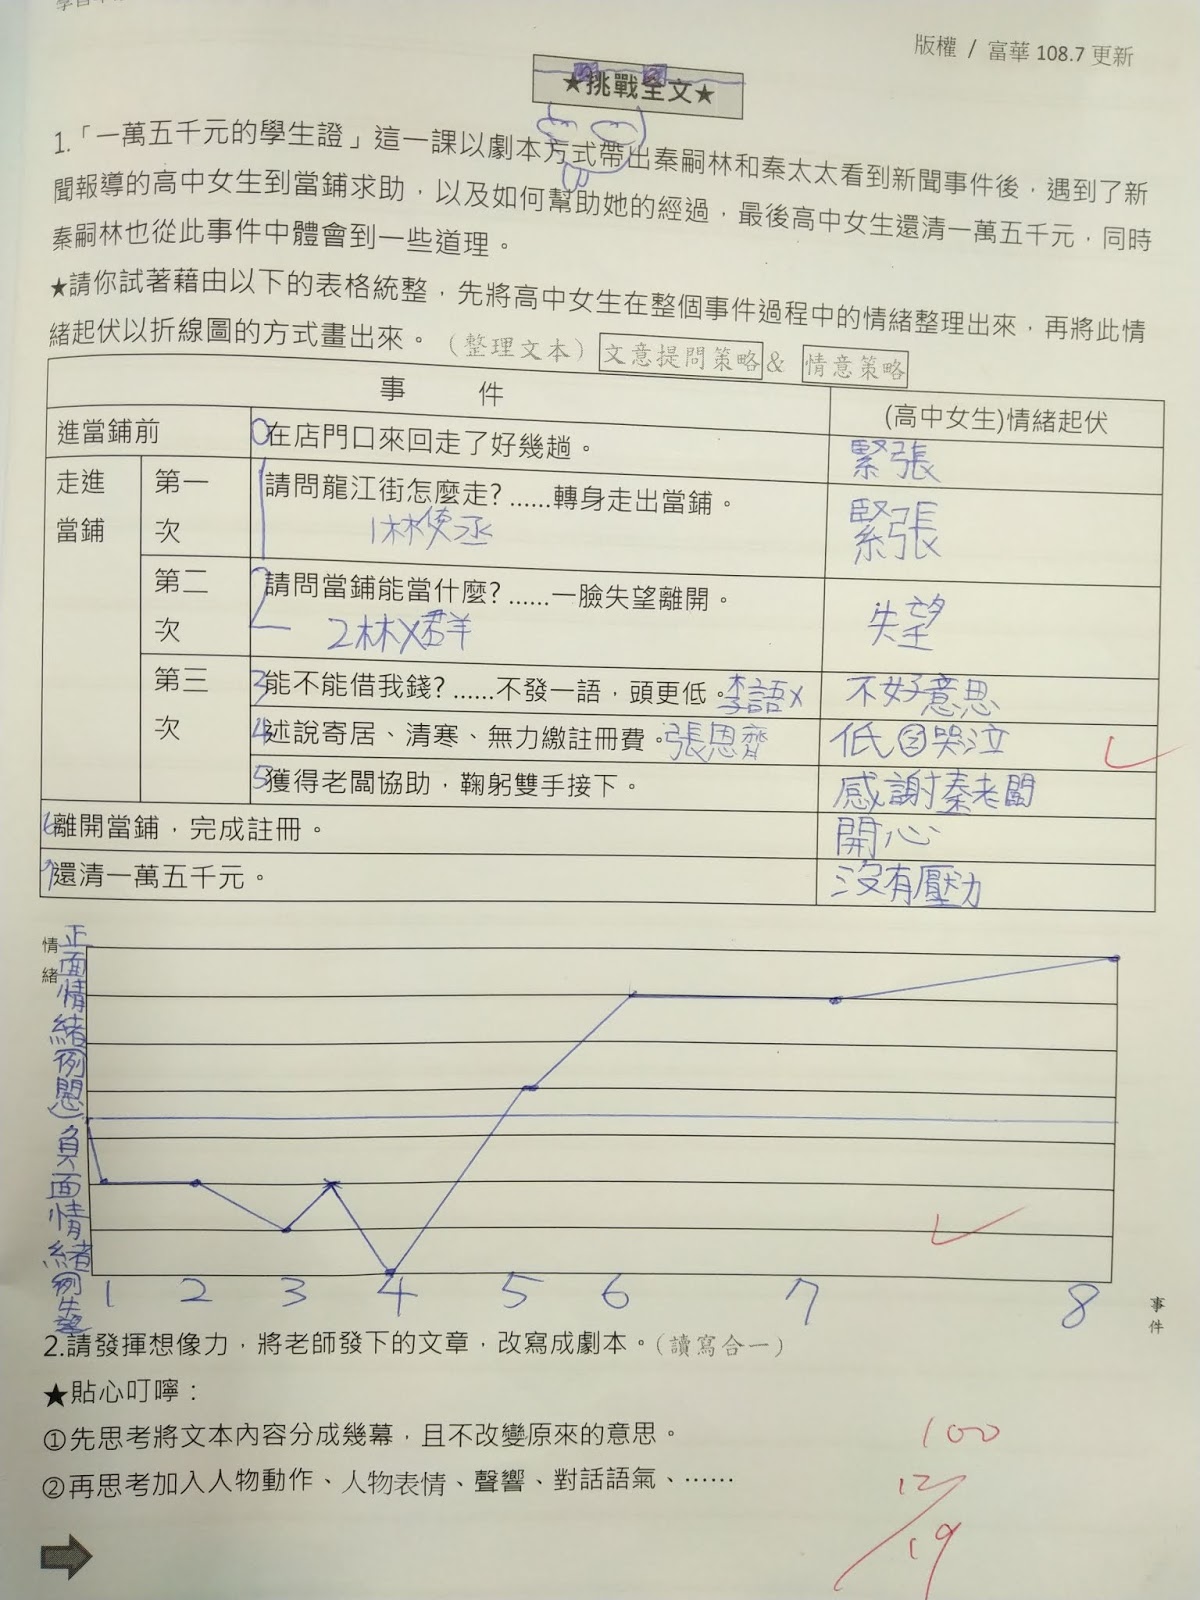 版權 / 富華 108.7 更新
★挑戰全文★
1.「一萬五千元的學生證」這一課以劇本方式帶出秦嗣林和秦太太看到新聞事件後，遇到了新
聞報導的高中女生到當鋪求助，以及如何幫助她的經過，最後高中女生還清一萬五千元，同時
秦嗣林也從此事件中體會到一些道理。
★請你試著藉由以下的表格統整，先將高中女生在整個事件過程中的情緒整理出來，再將此情
緒起伏以折線圖的方式畫出來。（整理文本）文意提問策略& 情意策略
事 件
(高中女生)情緒起伏
進當鋪前
0在店門口來回走了好幾趟。
緊張
走進
當鋪
第一
次
1請問龍江街怎麼走? ......轉身走出當鋪。
1林使丞
緊張
第二
次
2請問當鋪能當什麼? ......一臉失望離開。
2林X群
失望
第三
次
3能不能借我錢? ......不發一語，頭更低。李語x
不好意思
4述說寄居、清寒、無力繳註冊費。張恩齊
低 哭泣
5獲得老闆協助，鞠躬雙手接下。
感謝秦老闆
6離開當鋪，完成註冊。
開心
7還清一萬五千元。
沒有壓力
情
緒
正
面
情
緒
例
負
面
情
緒
例
失
望
1 2 3 4 5 6 7 8
事
件
2.請發揮想像力，將老師發下的文章，改寫成劇本。（讀寫合一）
★貼心叮嚀：
①先思考將文本內容分成幾幕，且不改變原來的意思。
②再思考加入人物動作、人物表情、聲響、對話語氣、......
100
12/19